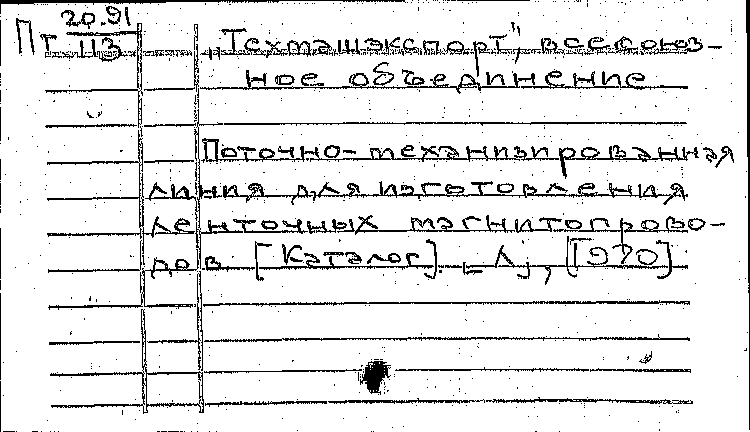 Пт 20.91/113
„Техмашэкспорт", всесоюз-
ное объединение
Поточно-механизированная
линия для изготовления
ленточных магнитопрово-
дов. [Каталог]. [1970]